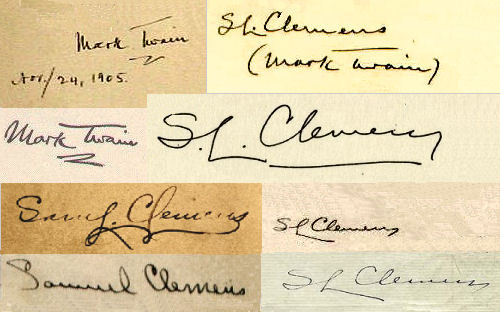 Mark Twain
Nov./24, 1905.
SL. Clemens
(Mark Twain)
Mark Twain
S. L. Clemens
Saml. Clemens
SL Clemens
Samuel Clemens
SL Clemens